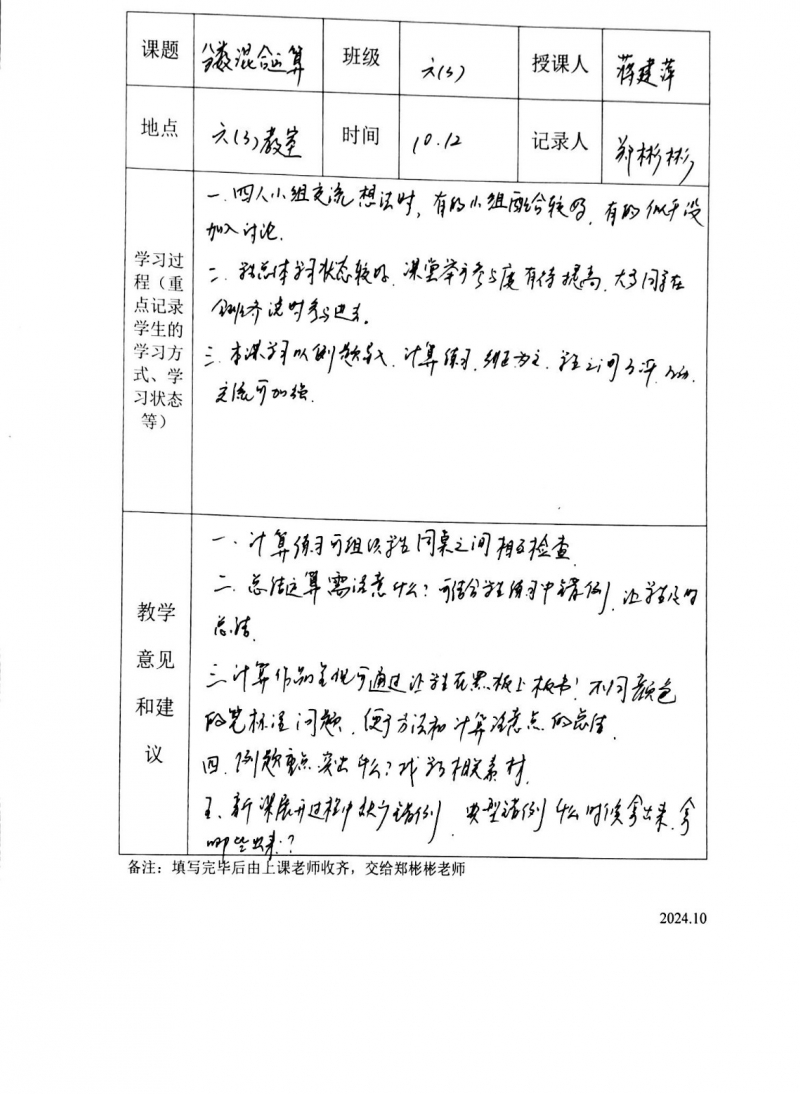 课题 分数混合运算 班级 六(3) 授课人 蒋建萍
地点 六(3)教室 时间 10.12 记录人 郑彬彬
学习过程（重点记录学生的学习方式、学习状态等）
一.四人小组交流想法时，有的小组配合较好，有的似乎没
加入讨论.
二.学生总体学习状态较好，课堂举手参与度有待提高，大多同学在
齐说时参与进去。
三.本课学习以例题导入，计算练习，为主，学生之间互评，
交流可加强.
教学意见和建议
一.计算练习可组织学生同桌之间相互检查
二.总结运算需注意什么？可结合学生练习中错例，让学生及时
总结.
三.计算作品呈现可通过让学生在黑板上板书！不同颜色
的笔标注问题，便于方法和计算注意点的总结
四.例题重点突出什么？找到相关素材.
五、新课展开过程中缺少错例，典型错例什么时候拿出来，拿
哪些出来？
备注：填写完毕后由上课老师收齐，交给郑彬彬老师
2024.10